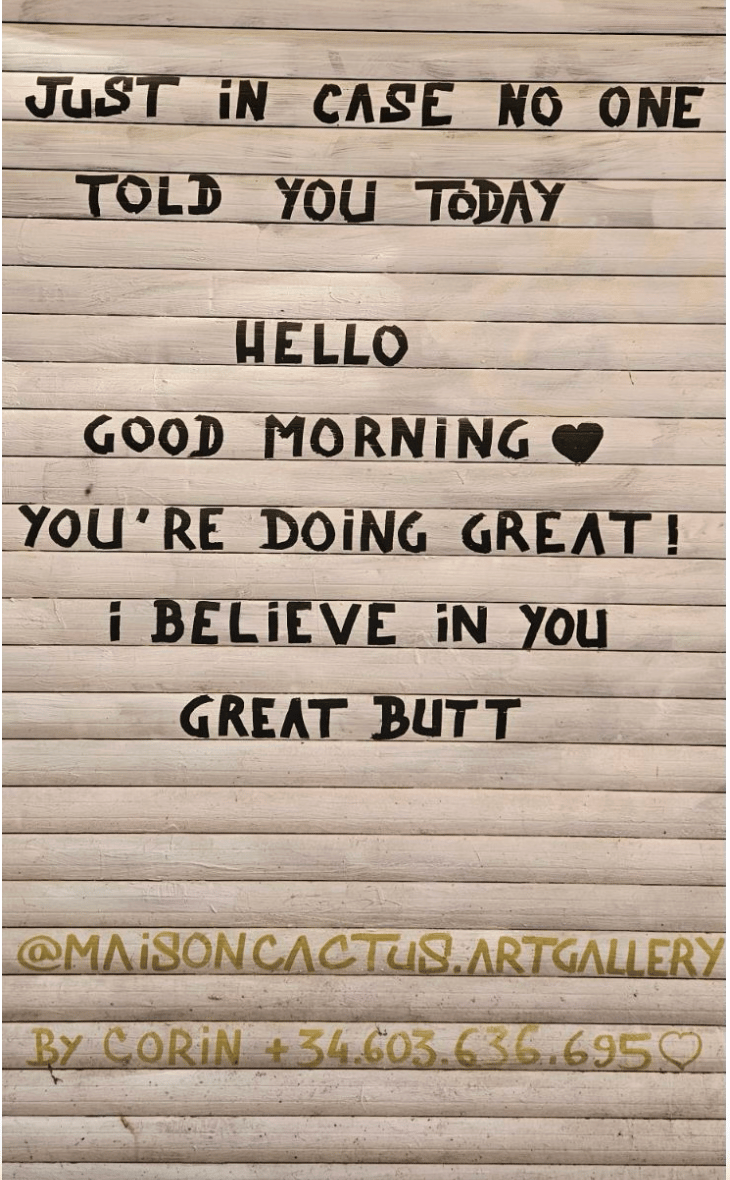 JUST iN CASE NO ONE
TOLD YOU TODAY
HELLO
GOOD MORNiNG ♥
YOU'RE DOiNG GREAT!
i BELiEVE iN YOU
GREAT BUTT
@MAiSONCACTUS.ARTGALLERY
BY CORiN +34.603.636.695♡